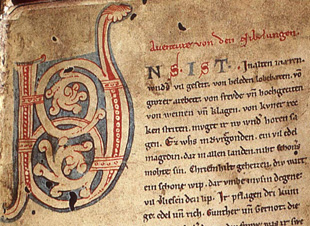 Auenture von den Nibelungen.
V N S. I S T. In alten mæren
wnders vil geseit. von heleden lobebæren. võ
grozer arebeit. von frevde vñ hochgeciten
von weinen vñ klagen. von kvner rec
ken striten. mvget ir nv wnder horen sa
gen. Ez whs in Bvrgonden. ein vil edel
magedin. daz in allen landen. niht schoners
mohte sin. Chriemhilt geheizen. div wart
ein schone wip. dar vmbe mvsin degene
vil verliesen den lip. Ir pflagen dri kuni
ge edel vñ rich. Gunther vñ Gernot die